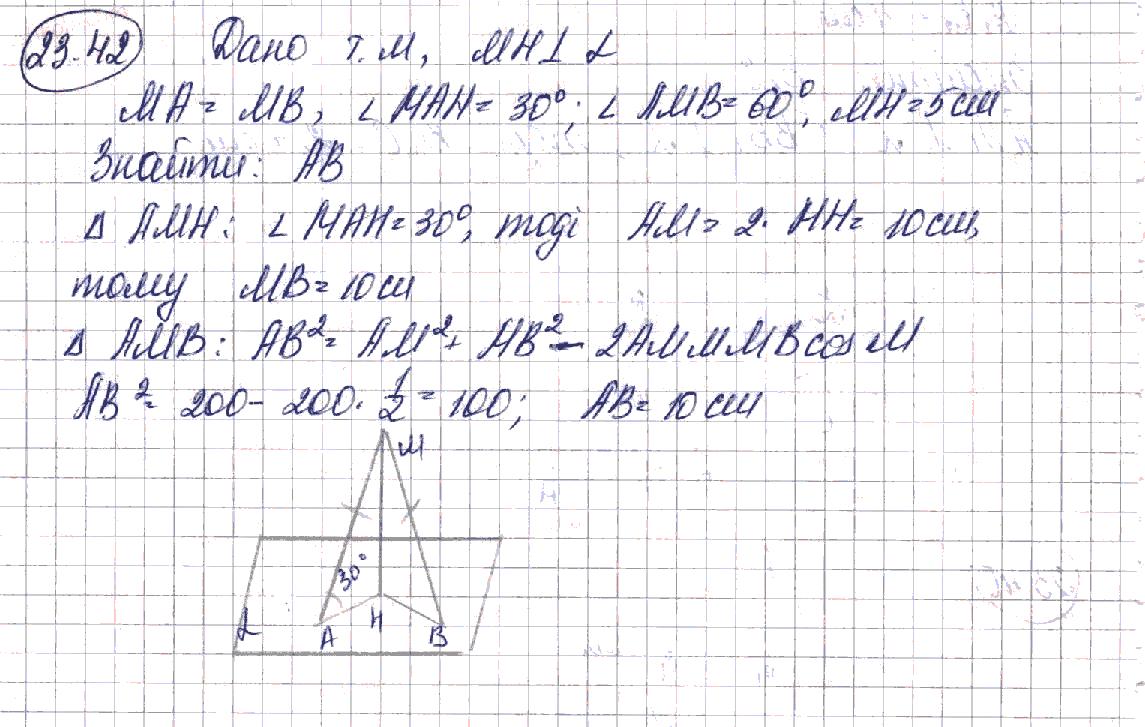 23.42 Дано т. М, MH⊥ α
MA = MB, ∠ MAH = 30°; ∠ AMB = 60°, MH = 5 см
Знайти: AB
Δ AMH: ∠ MAH = 30°, тоді AM = 2· MH = 10 см,
тому MB = 10 см
Δ AMB: AB² = AM² + MB² - 2AM M MB cos M
AB² = 200 - 200 · 1/2 = 100; AB = 10 см
M
30°
α A H B